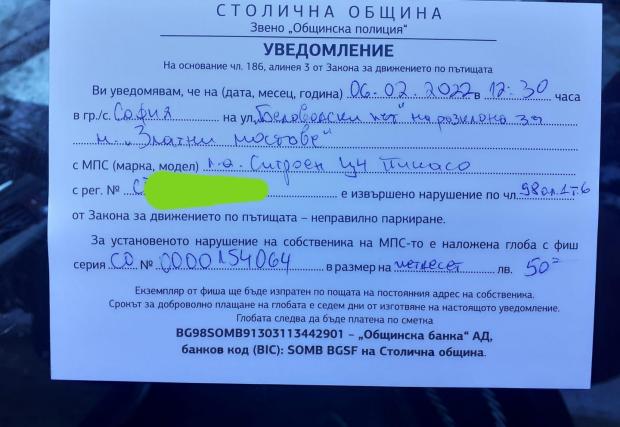 СТОЛИЧНА ОБЩИНА
Звено „Общинска полиция“
УВЕДОМЛЕНИЕ
На основание чл. 186, алинея 3 от Закона за движението по пътищата
Ви уведомявам, че на (дата, месец, година) 06.02.2022 в 12:30 часа
в гр./с. София на ул. „Беловодски път“ на разклона за
м. „Златни мостове“
с МПС (марка, модел) л.а. Ситроен Ц4 Пикасо
с рег. № С е извършено нарушение по чл. 98 ал.1 т.6
от Закона за движението по пътищата – неправилно паркиране.
За установеното нарушение на собственика на МПС-то е наложена глоба с фиш
серия СО № 0000154064 в размер на петдесет лв. 50=
Екземпляр от фиша ще бъде изпратен по пощата на постоянния адрес на собственика.
Срокът за доброволно плащане на глобата е седем дни от изготвяне на настоящото уведомление.
Глобата следва да бъде платена по сметка
BG98SOMB91303113442901 – „Общинска банка“ АД,
банков код (BIC): SOMB BGSF на Столична община.